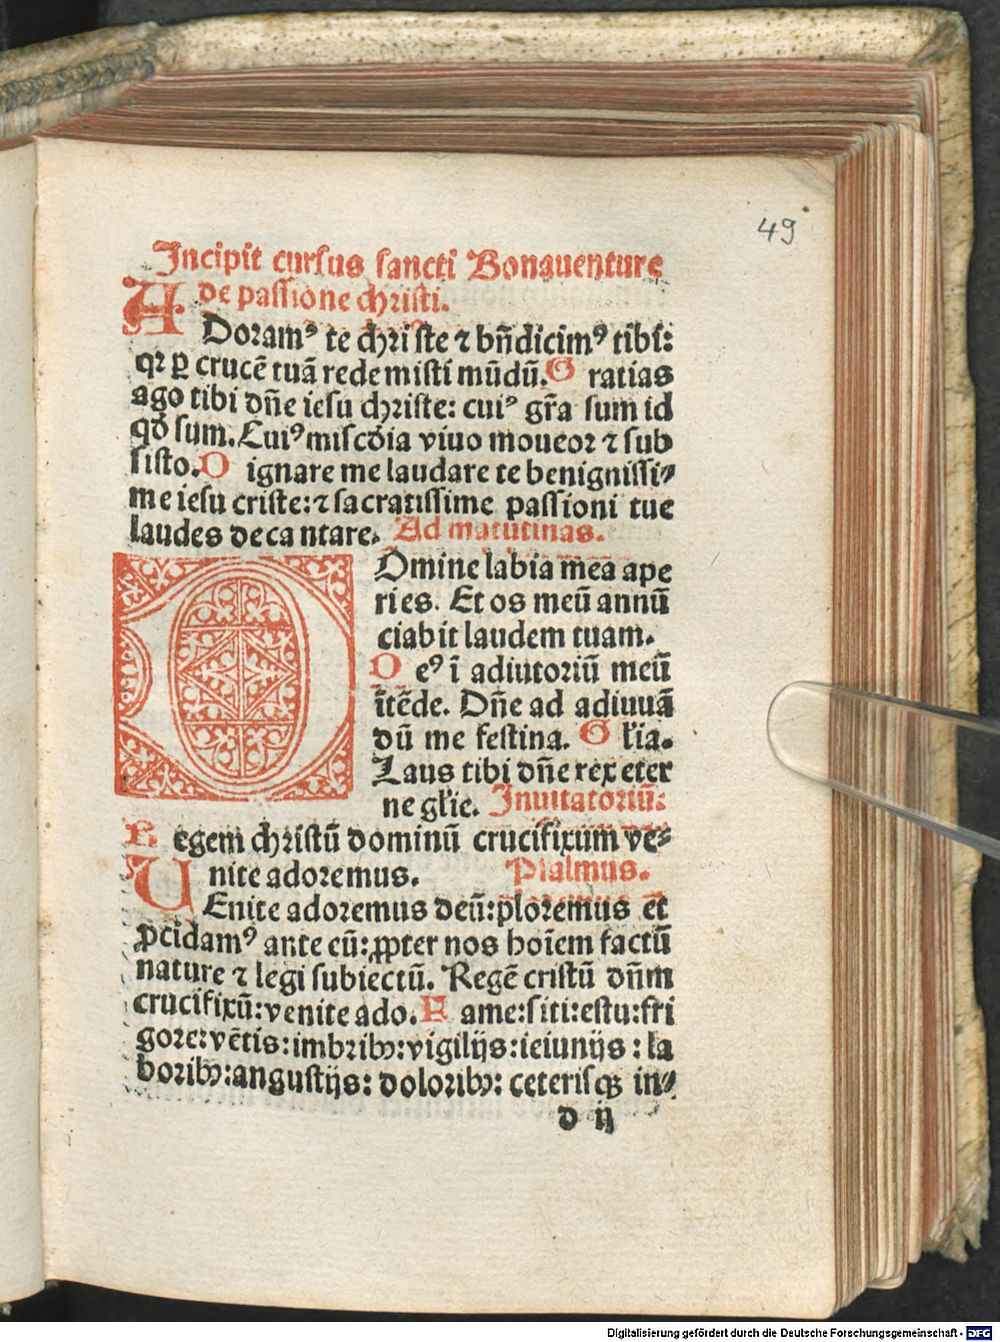 49
Incipit cursus sancti Bonauenture
de passione christi.
ADoramꝰ te christe ⁊ bn̄dicimꝰ tibi:
qꝛ ꝑ crucē tuā redemisti mūdū. Gratias
ago tibi dn̄e iesu christe: cuiꝰ gr̄a sum id
qd̄ sum. Cuiꝰ miscd̄ia viuo moueor ⁊ sub
sisto. Dignare me laudare te benignissi⸗
me iesu criste: ⁊ sacratissime passioni tue
laudes decantare. Ad matutinas.
DOmine labia mea ape
ries. Et os meū annū
ciabit laudem tuam.
Deꝰ ī adiutoriū meū
ītēde. Dn̄e ad adiuuā
dū me festina. Gl̄ia.
Laus tibi dn̄e rex eter
ne gl̄ie. Inuitatoriū:
Regem christū dominū crucifixum ve⸗
nite adoremus. Psalmus.
VEnite adoremus deū: ploremus et
ꝓcidamꝰ ante eū: ꝓpter nos hoīem factū
nature ⁊ legi subiectū. Regē cristū dn̄m
crucifixū: venite ado. Fame: siti: estu: fri
gore: vētis: imbribꝰ: vigilijs: ieiunijs: la
boribꝰ: angustijs: doloribꝰ: ceterisqꝫ in⸗
d ij
Digitalisierung gefördert durch die Deutsche Forschungsgemeinschaft - DFG